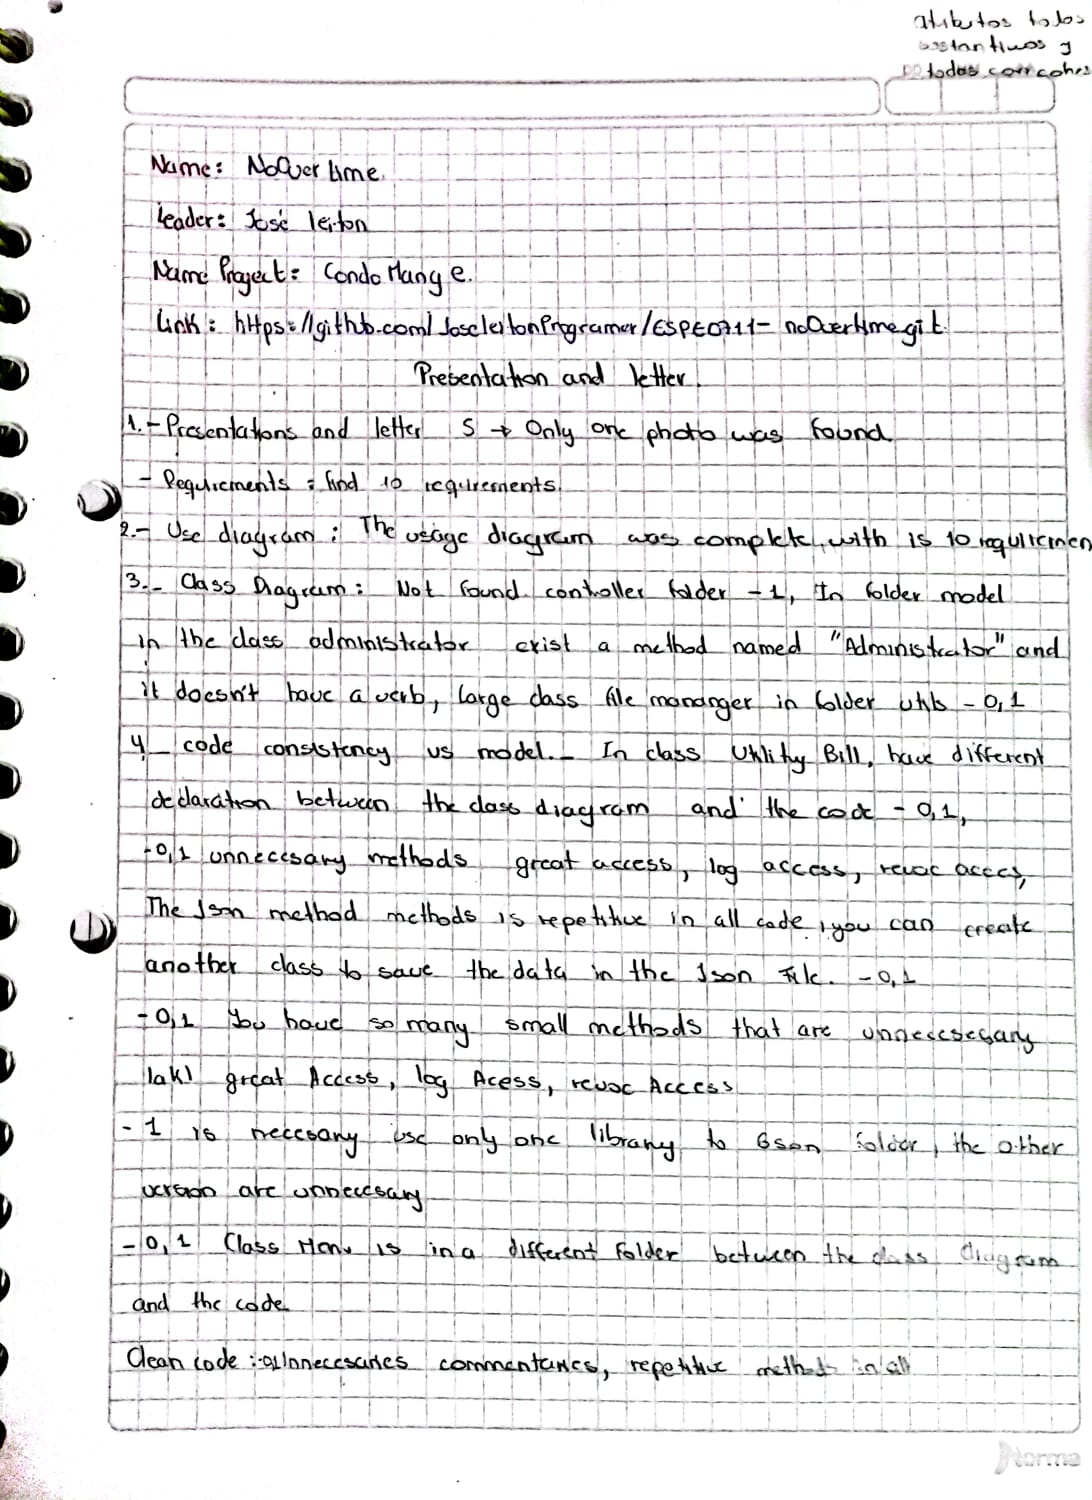 atributos todos
sustantivos y
todos con cohes
Name: NoOvertime.
Leader: José leiton
Name Project: CondoMang e.
Link: https://github.com/JoseleitonProgramer/ESPE0711-noOvertime.git.
Presentation and letter.
1.- Presentations and letter S → Only one photo was found
- Requirements: find 10 requirements.
2.- Use diagram: The usage diagram was complete, with is 10 requiremen
3.- Class Diagram: Not found controller folder -1, In folder model
in the class administrator exist a method named "Administrator" and
it doesn't have a verb, large class file mananger in folder utils - 0,1
4 - code consistency vs model.- In class Utility Bill, have different
declaration between the class diagram and the code - 0,1,
-0,1 unneccesary methods great access, log access, revoc acces,
The Json method methods is repetitive in all code, you can create
another class to save the data in the Json File. - 0,1
- 0,1 You have so many small methods that are unneccsesary
lakl great Access, log Acess, revoc Access
- 1 is neccesary use only one library to Gson folder, the other
version are unneccesary
- 0,1 Class Menu is in a different folder between the class diagram
and the code
Clean code: Unneccesaries commentaries, repetitive methods in all
Norma